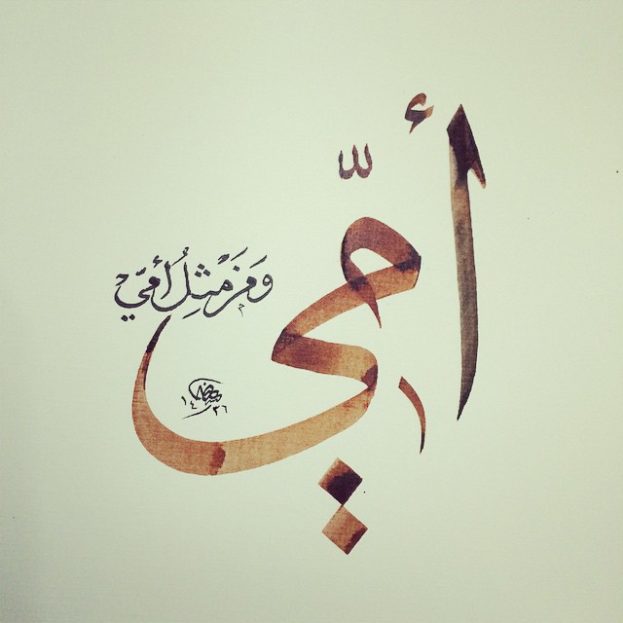 أمِّي
وَمَن مثلُ أمّي
١٤٣٦